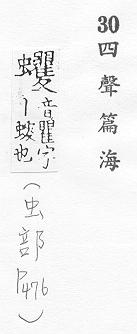 30 四聲篇海
蠼音瞿字
丨螋也
(虫部 P476)